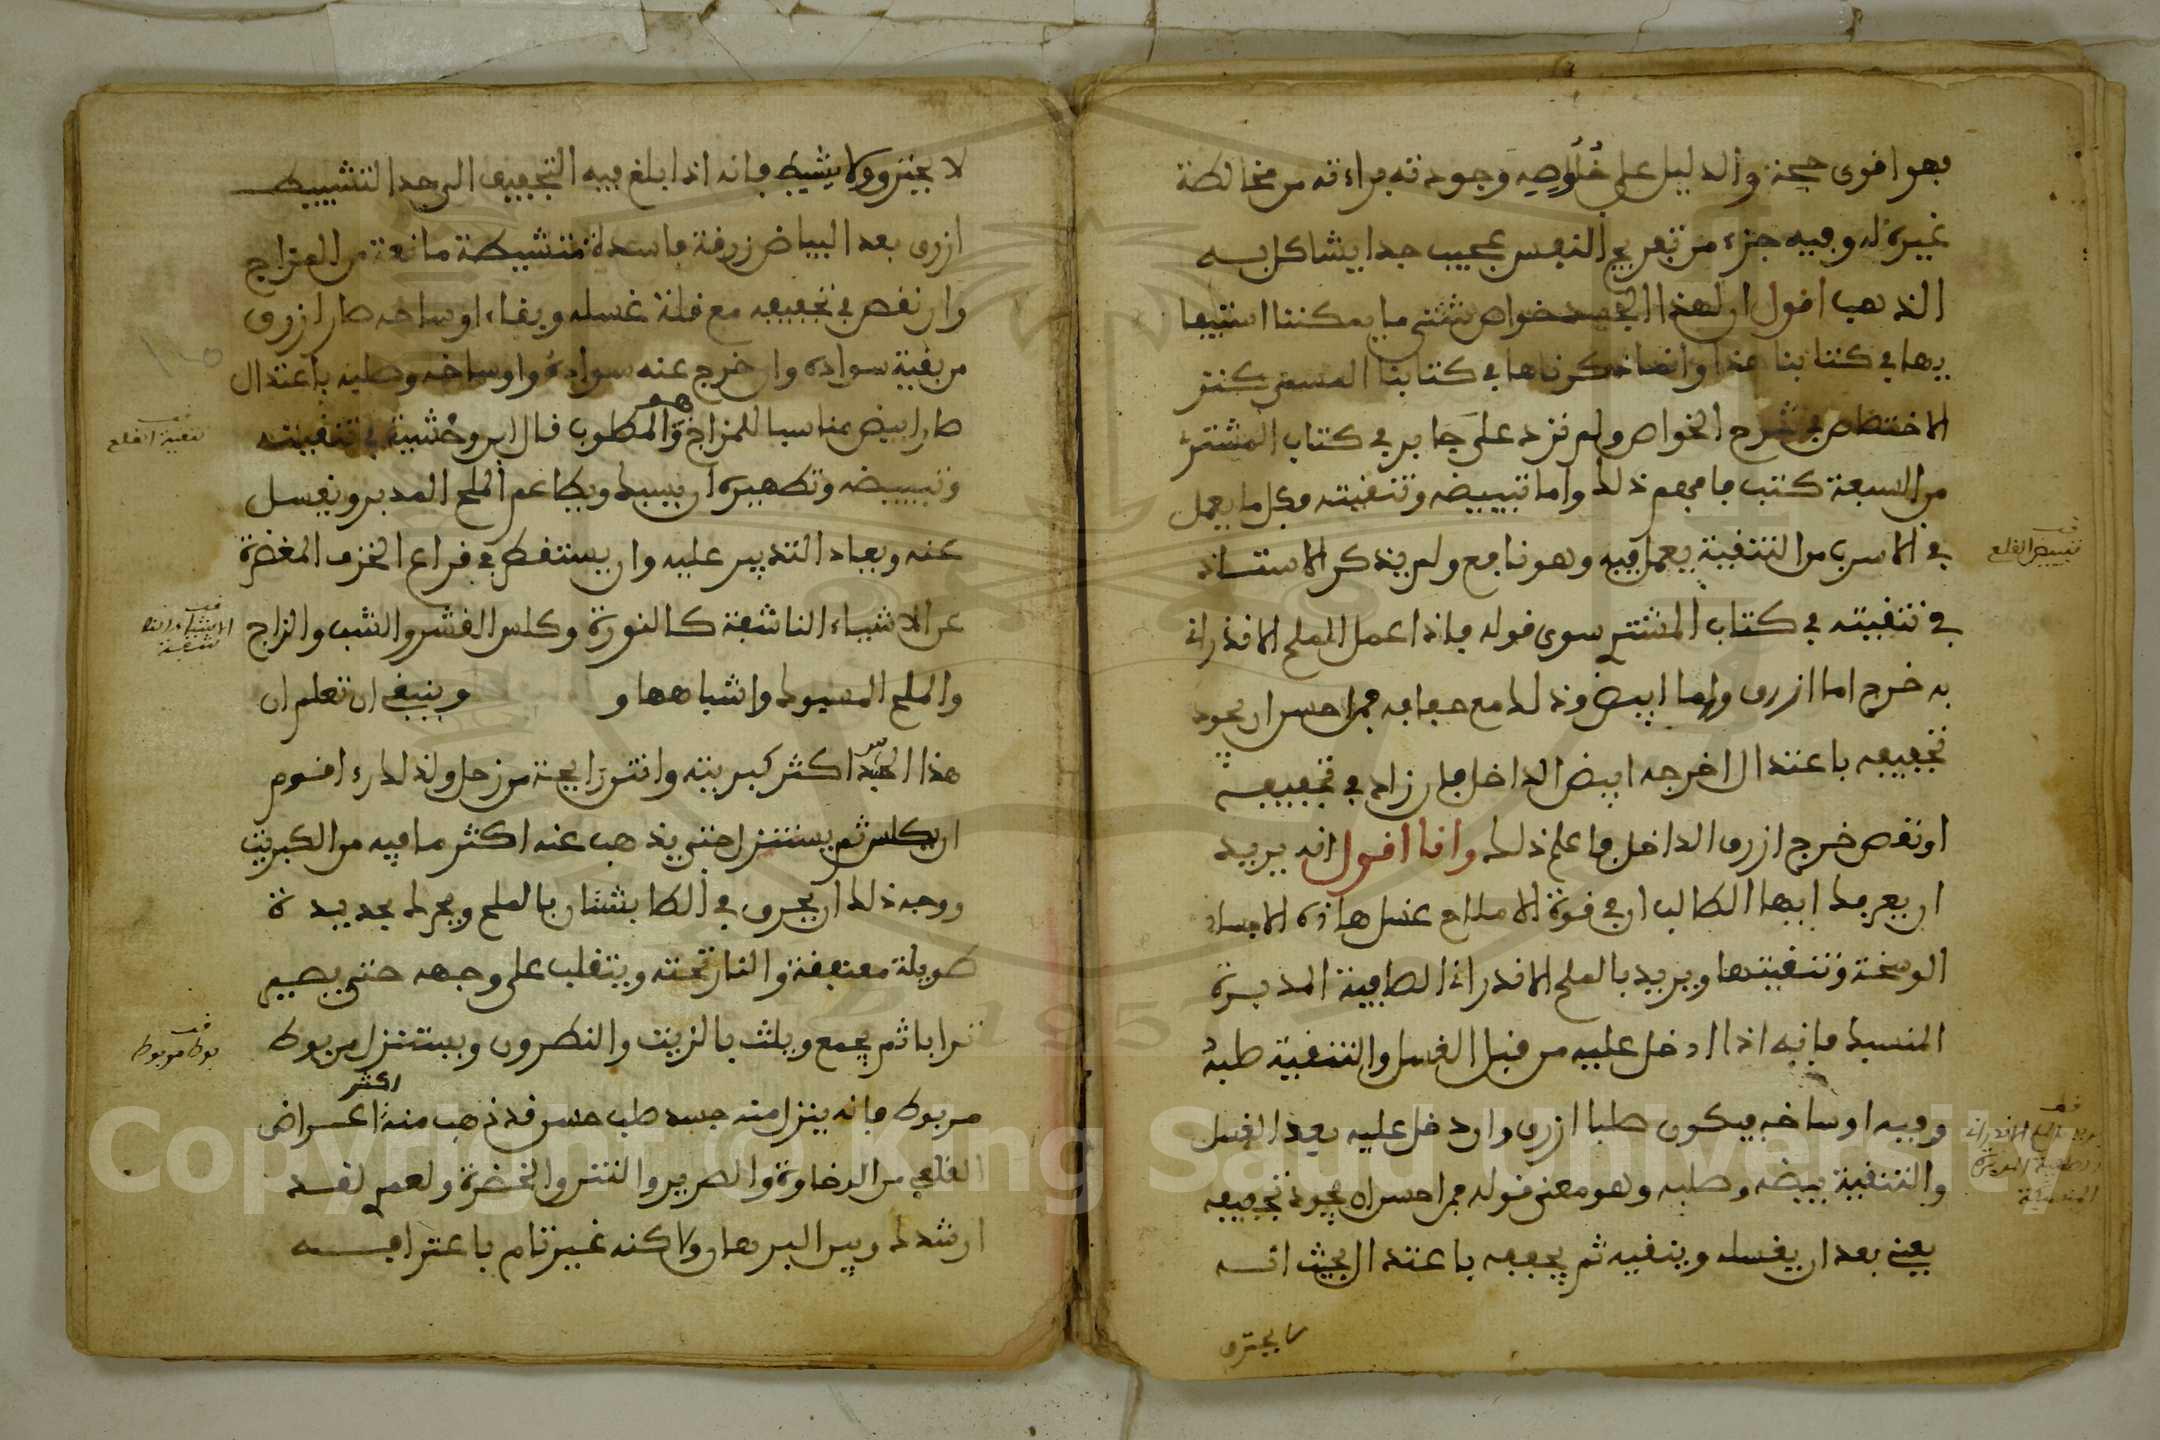 فهو اقوى حجة والدليل على خُلُوصِه وجودته براءته من مخالطة
غيره له وفيه جزء من تفريح النفس عجيب جدا يشاكل به
الذهب اقول ان لهذا الجسد خواص شتى ما يمكننا استيفا
يها في كتابنا هذا وانما ذكرناها في كتابنا المسمى كنز
الاختصاص في شرح الخواص ولم نزد على جابر في كتاب المشترى
من السبعة كتب فافهم ذلك واما تبييضه وتنقيته فكل ما يعمل
في الاسرب من التنقية يعمل فيه وهو نافع ولم يذكر الاستاذ
في تنقيته في كتاب المشترى سوى قوله فاذا اعمل الملح الاندراني
به خرج اما ازرق واما ابيض وذلك مع جفافه فمن احسن ان يجود
تجفيفه باعتدال اخرجه ابيض الداخل فان زاد في تجفيفه
او نقص خرج ازرق الداخل فاعلم ذلك وانا اقول انه يريد
ان يعرفك ايها الطالب ان في قوة الاملاح غسل هاذه الاجساد
الوسخة وتنقيتها ويريد بالملح الاندراني الصافية المدبرة
المنسبك فانه اذا ادخل عليه من قبل الغسل والتنقية صلبه
وفيه اوساخه فيكون صلبا ازرق وان دخل عليه بعد الغسل
والتنقية بيضه وصلبه وهو معنى قوله فمن احسن ان يجود تجفيفه
يعنى بعد ان يغسله وينقيه ثم يجففه باعتدال بحيث انه
لا يحترق
قف
تبييض القلع
قف
يريد بالملح الاندراني
الصافية المدبرة
المنسبكة
لا يحترق ولا يشيط فانه اذا بلغ فيه التجفيف الى حد التشييط
ازرق بعد البياض زرقة فاسدة متشيطة مانعة من المزاج
وان نقص في تجفيفه مع قلة غسله وبقاء اوساخه صار ازرق
من بقية سواده وان خرج عنه سواده واوساخه وصلبه باعتدال
صار ابيض مناسبا للمزاج وهو المطلوب قال ابن وحشية في تنقيته
وتبييضه وتطهيره ان يسبك ويطاعم الملح المدبر ويغسل
عنه ويعاد التدبير عليه وان يستقطر في قراع الخزف المغضرة
عن الاشياء الناشفة كالنورة وكلس القشر والشب والزاج
والملح المسبوك واشباهها و وينبغي ان تعلم ان
هذا الجسد اكثر كبريتة وانتن رايحة من زحل ولذلك رءا قوم
ان يكلس ثم يستنزل حتى يذهب عنه اكثر ما فيه من الكبريت
ووجه ذلك ان يحرق في الطابشتان بالملح ويحرك بحديدة
طويلة معقفة والنار تحته ويتقلب على وجهه حتى يصير
ترابا ثم يجمع ويلث بالزيت والنطرون ويستنزل من بوط
مربوط فانه ينزل منه جسد صلب حسن قد ذهب منه اكثر اعراض
القلعي من الرخاوة والصرير والنتن والخضرة ولعمر لقد
ارشدك وبين البرهان ولاكنه غير تام باعترافه
قف
تنقية القلع
قف
الاشياء النا
شفة
قف
بوط مربوط